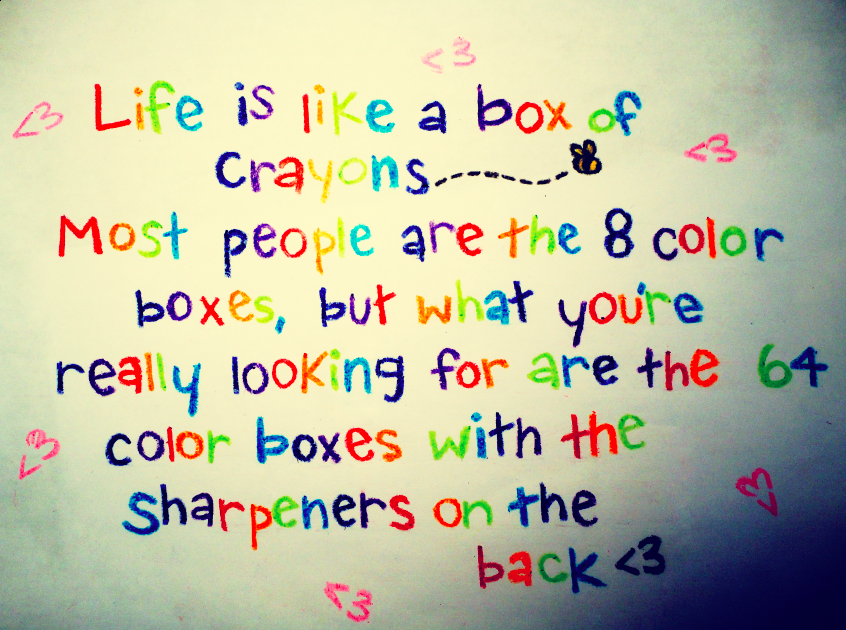 <3
Life is like a box of
<3
crayons
<3
Most people are the 8 color
boxes, but what you're
really looking for are the 64
color boxes with the
<3
sharpeners on the
<3
back <3
<3